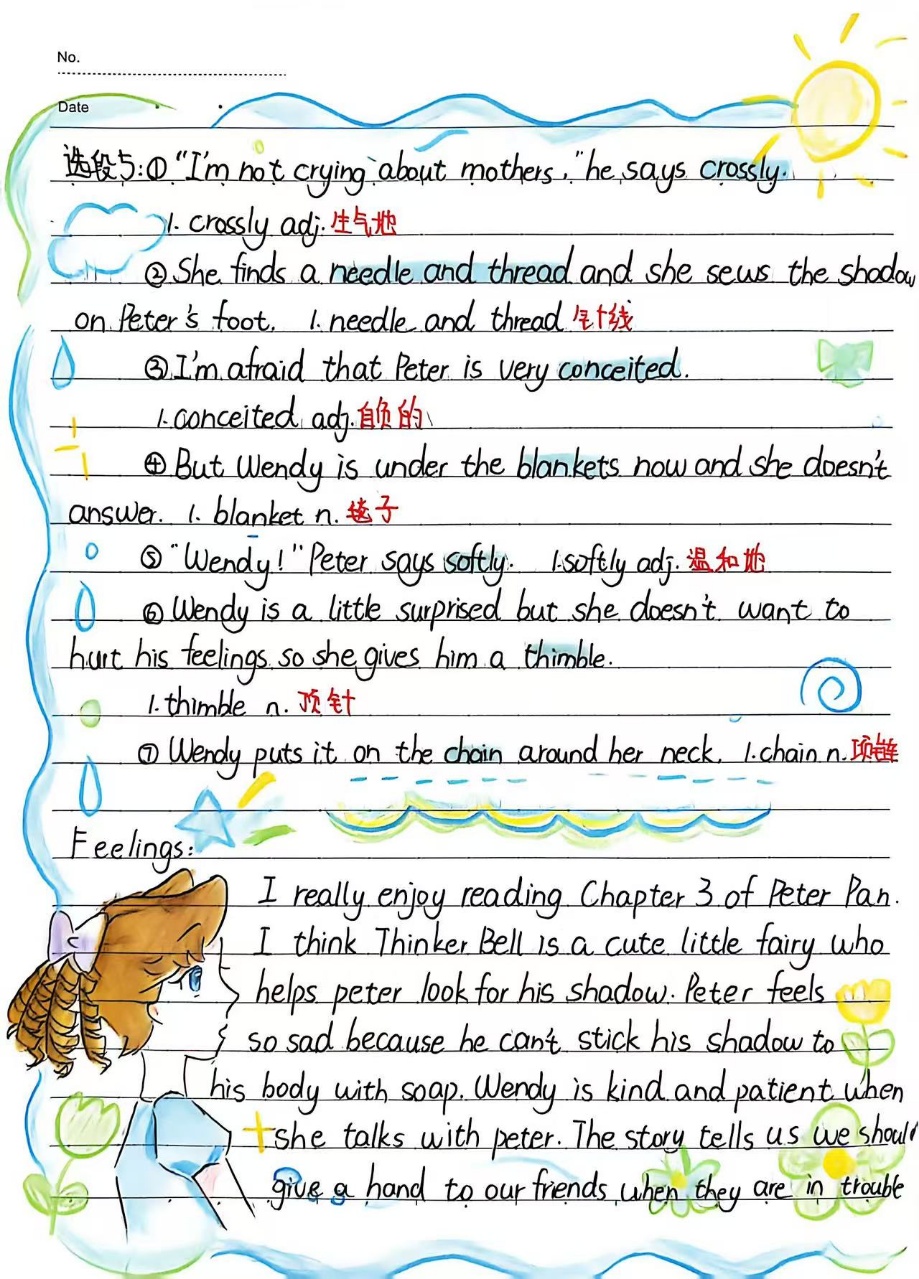 No.
Date
选段5:① “I'm not crying about mothers,” he says crossly.
1. crossly adj. 生气地
② She finds a needle and thread and she sews the shadow
on Peter's foot. 1. needle and thread 针线
③ I'm afraid that Peter is very conceited.
1. conceited adj. 自负的
④ But Wendy is under the blankets now and she doesn't
answer. 1. blanket n. 毯子
⑤ “Wendy!” Peter says softly. 1. softly adj. 温和地
⑥ Wendy is a little surprised but she doesn't want to
hurt his feelings so she gives him a thimble.
1. thimble n. 顶针
⑦ Wendy puts it on the chain around her neck. 1. chain n. 项链
Feelings:
I really enjoy reading Chapter 3 of Peter Pan.
I think Thinker Bell is a cute little fairy who
helps peter look for his shadow. Peter feels
so sad because he can't stick his shadow to
his body with soap. Wendy is kind and patient when
she talks with peter. The story tells us we should
give a hand to our friends when they are in trouble